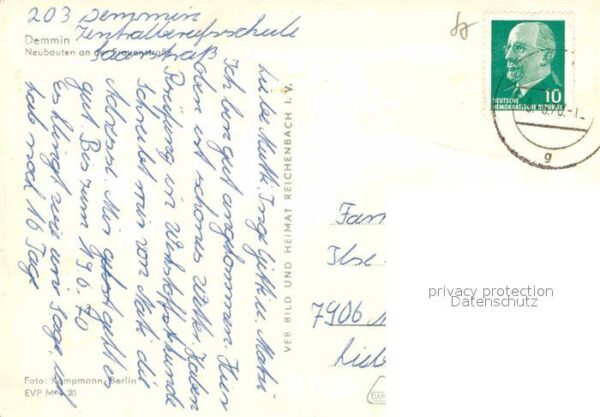 203 Demmin
Zentralberufsschule
Saarstraß
Demmin
Neubauten an der Frauenstraße
Liebe Mutti, Inge, Gitti u. Mati
Ich bin gut angekommen. Hier
oben ist schönes Wetter. Haben
Prüfung in Werkstoffkunde
Schreibt mir von Mati die
Adresse. Mir geht es
gut Bis zum 19.6.70
Es klingt wie im Sage, ich
hab noch 16 Tage
Foto: Kampmann, Berlin
EVP M 0.20
VEB BILD UND HEIMAT REICHENBACH I. V.
10
DEUTSCHE
DEMOKRATISCHE REPUBLIK
g
Fam
Ilse
7906
Lieb
privacy protection
Datenschutz